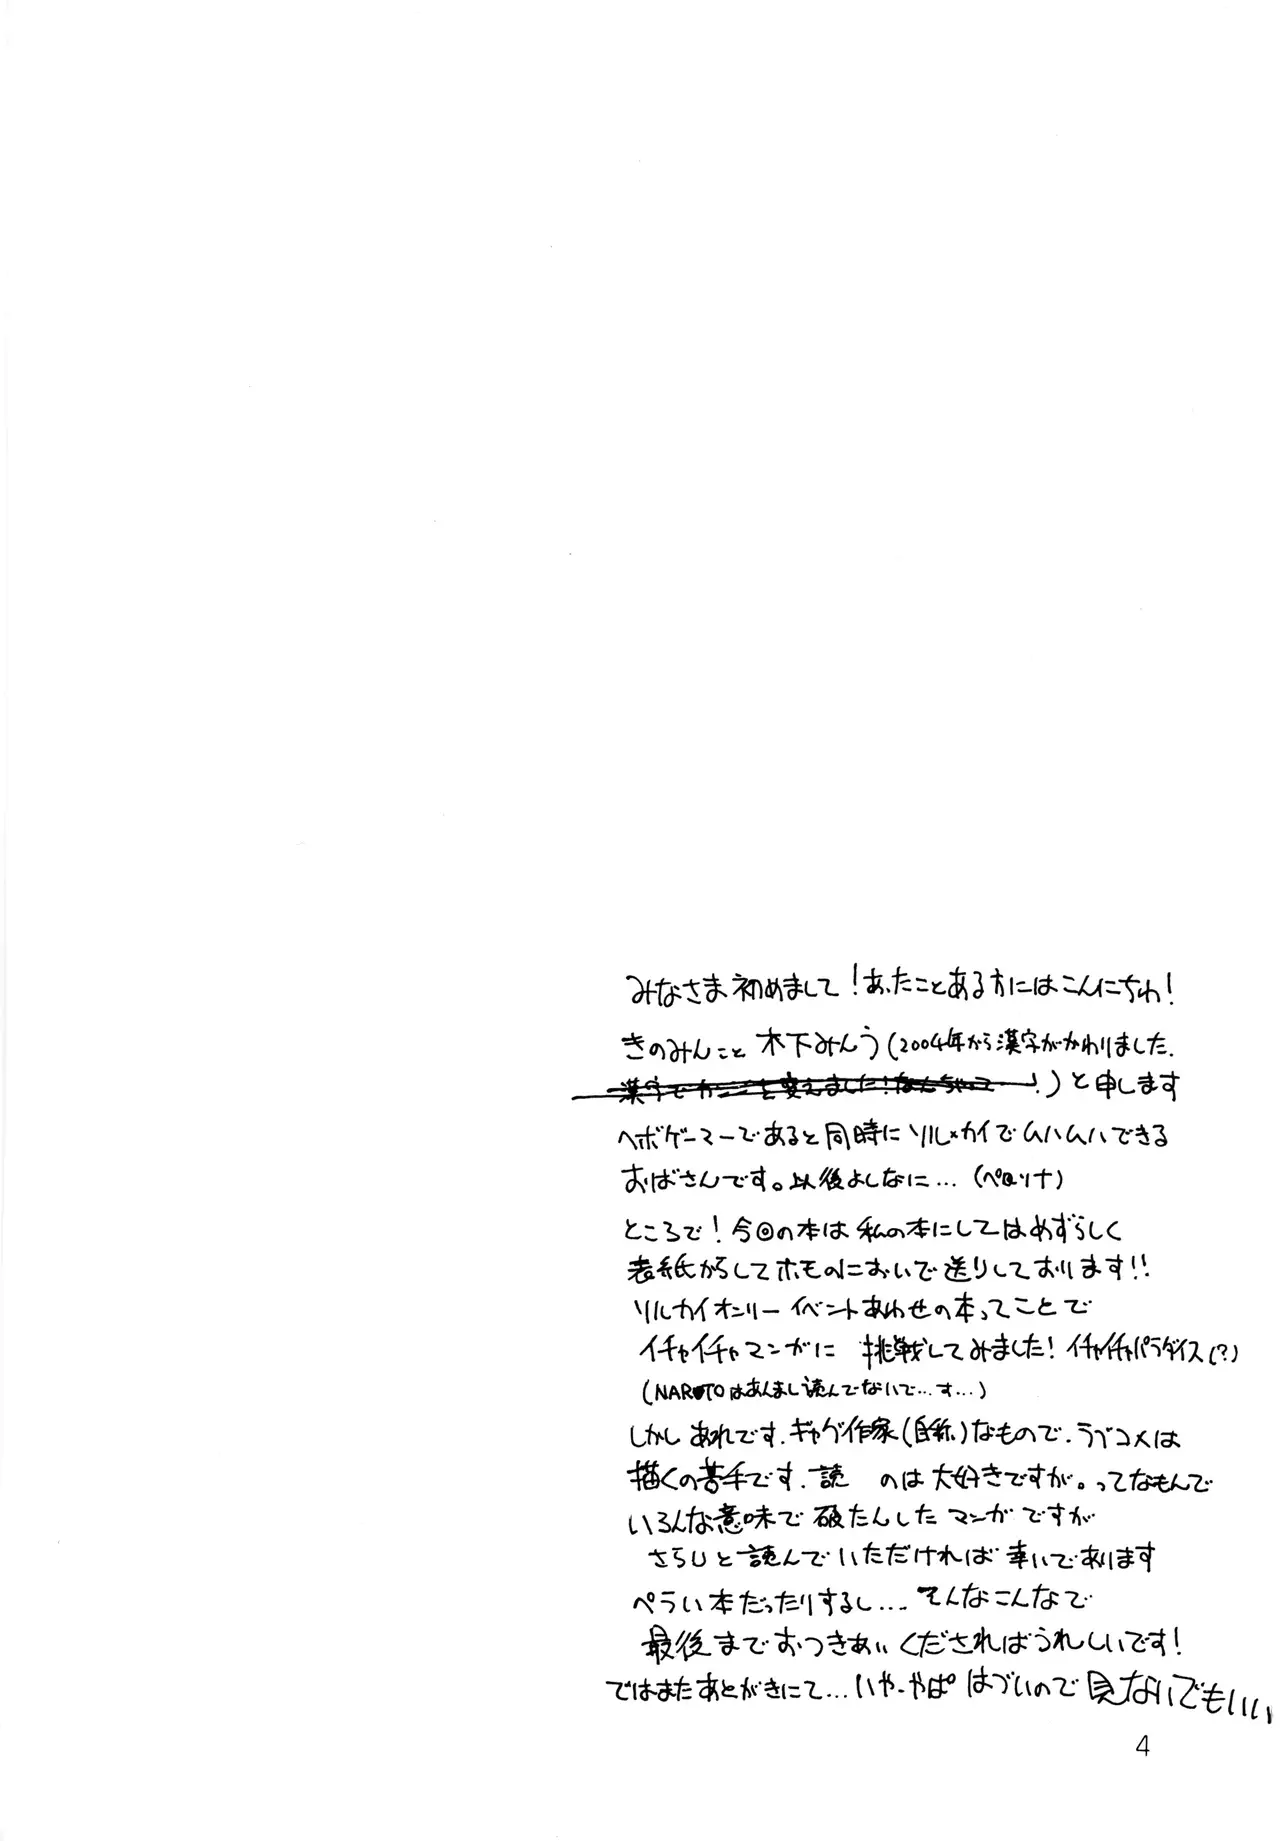 みなさま初めまして！あったことある方にはこんにちわ！
きのみんこと 木下みんう（2004年から漢字がかわりました.
漢字で　を変えました！なんちゃって　！）と申します
ヘボゲーマーであると同時にソル×カイでムハムハできる
おばさんです。以後よしなに…（ペロリナ）
ところで！今回の本は 私の本にしてはめずらしく
表紙からしてホモのにおいで送りしております!!
ソルカイオンリーイベントあわせの本ってことで
イチャイチャマンガに 挑戦してみました！イチャイチャパラダイス(?)
（NARUTOはあんまし読んでないで…す…）
しかし あれです.ギャグ作家（自称）なもので.ラブコメは
描くの苦手です.読 のは大好きですが。ってなもんで
いろんな意味で 破たんしたマンガですが
さらりと読んでいただければ 幸いであります
ペラい本だったりするし… そんなこんなで
最後までおつきあいくださればうれしいです！
ではまたあとがきにて…いやっやぱ はづいので見ないでもいい
4